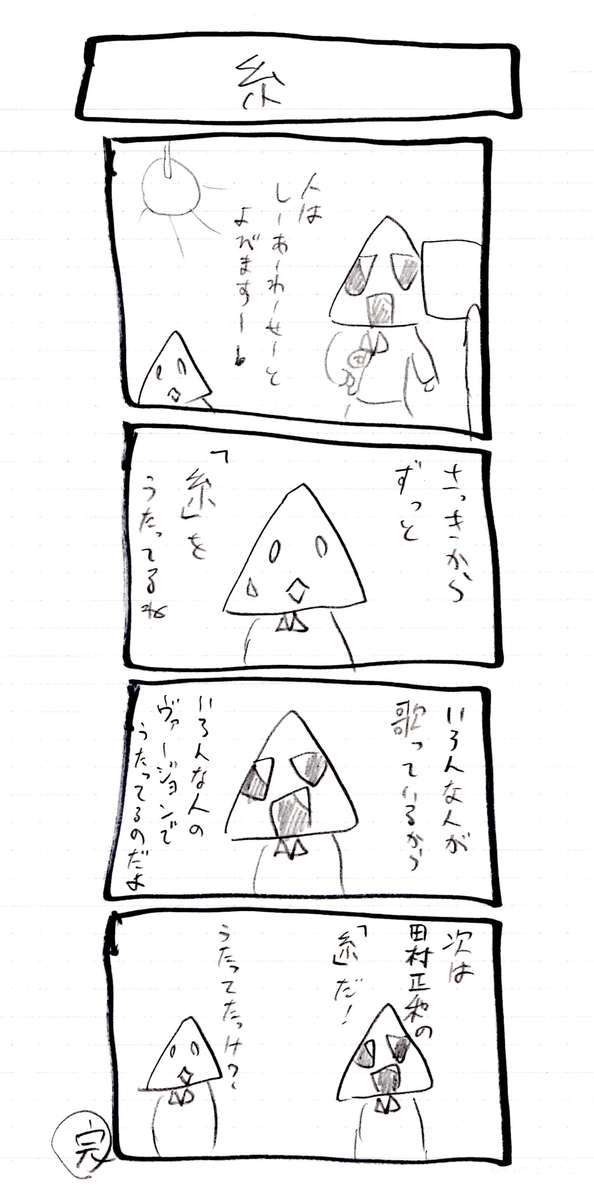 糸
人は
しーあーわーせーと
よびますー♪
さっきから
ずっと
「糸」を
うたってるね
いろんな人が
歌っているから
いろんな人の
ヴァージョンで
うたってるのだよ
次は
田村正和の
「糸」だ!
うたってたっけ?
完